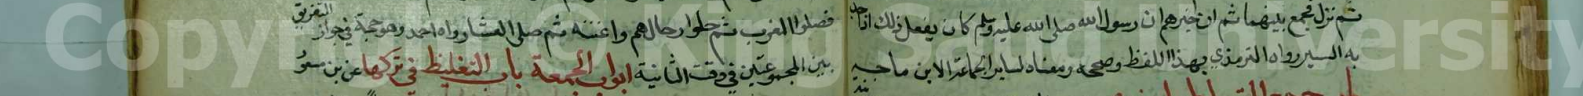 ثم نزل فجمع بينهما ثم اخبرهم ان رسول الله صلى الله عليه وسلم كان يفعل ذلك اذا جد
به السير رواه الترمذي بهذا اللفظ وصححه ومعناه لسائر الجماعة الا ابن ماجه
فصلوا المغرب ثم حلوا رحالهم واعنته ثم صلى العشا رواه احمد وهو حجة في جواز التفريق
بين المجموعتين في وقت الثانية ابواب الجمعة باب التغليظ في تركها عن بن مسعود